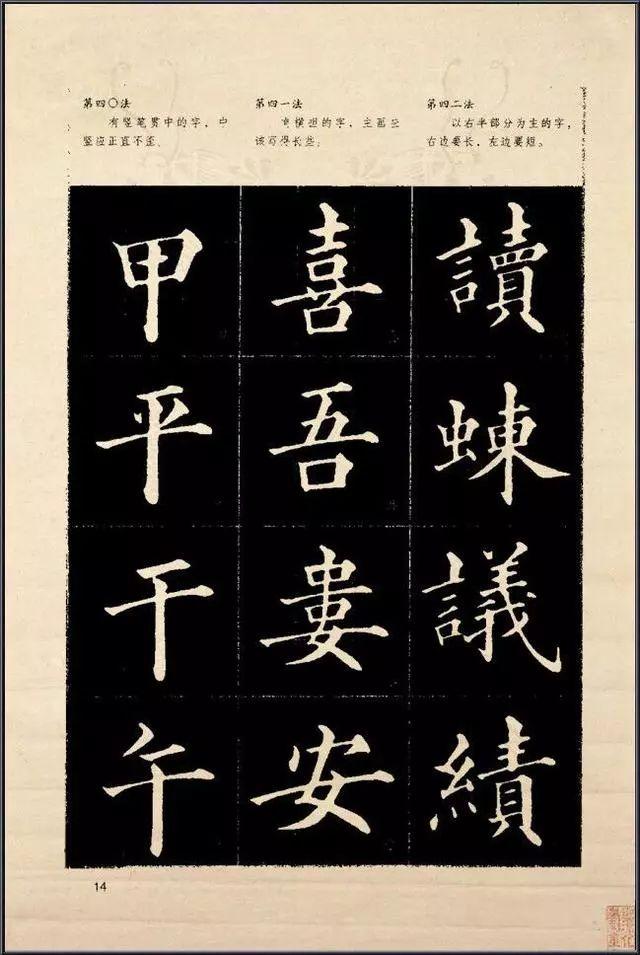 第四〇法
有竖笔贯中的字，中
竖应正直不歪。
第四一法
横担的字，主画应
该写得长些。
第四二法
以右半部分为主的字，
右边要长，左边要短。
甲 喜 讀
平 吾 蝀
干 婁 議
午 安 績
14